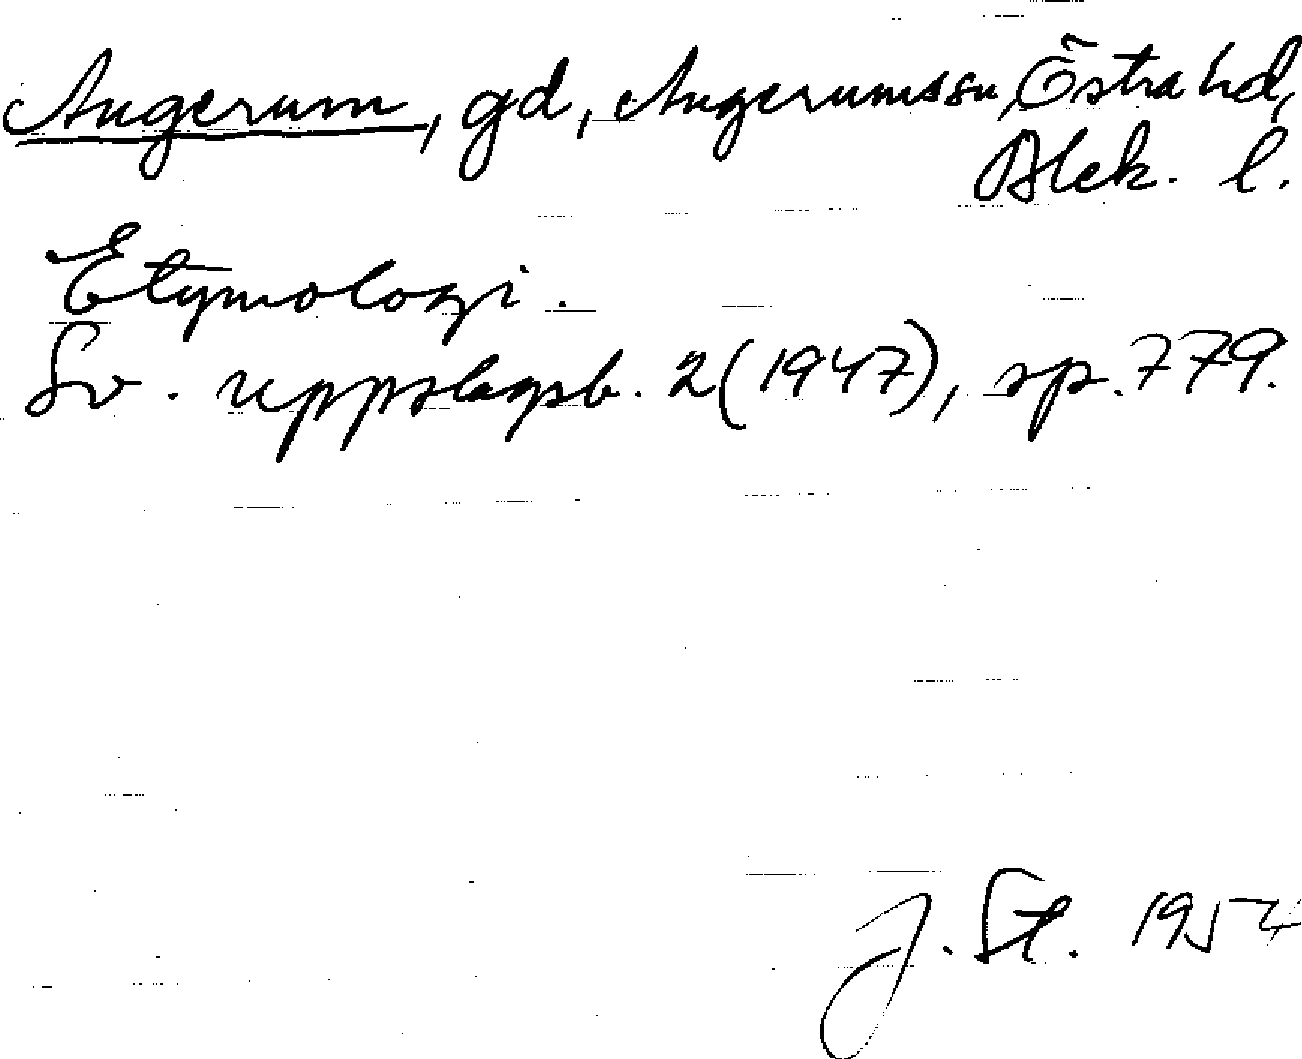 Augerum, gd, Augerumssn, Östra hd,
Blek. l.
Etymologi.
Sv. uppslagsb. 2 (1947), sp. 779.
J. St. 1954